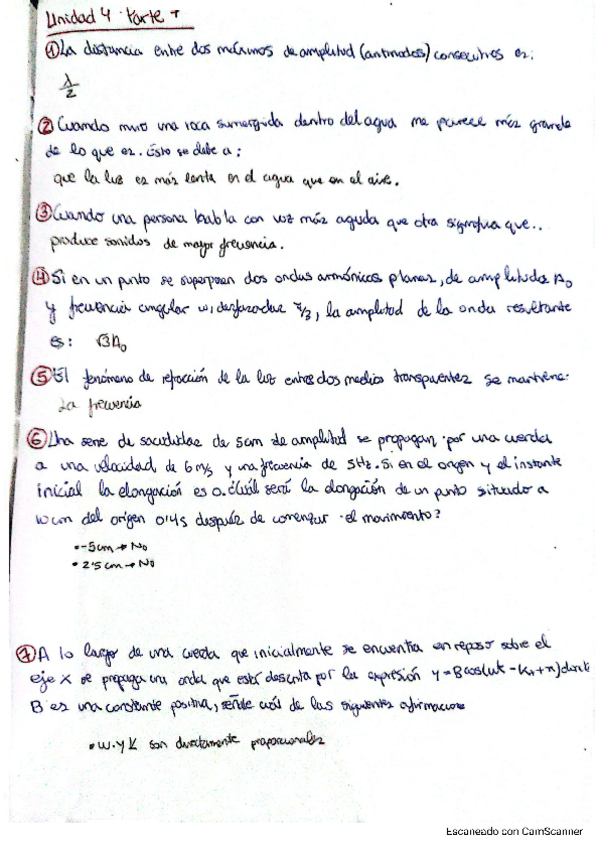 Unidad 4 Parte I
① La distancia entre dos máximos de amplitud (antinodos) consecutivos es:
λ/2
② Cuando miro una roca sumergida dentro del agua me parece más grande
de lo que es. Esto se debe a:
que la luz es más lenta en el agua que en el aire.
③ Cuando una persona habla con voz más aguda que otra significa que..
produce sonidos de mayor frecuencia.
④ Si en un punto se superponen dos ondas armónicas planas, de amplitudes A₀
y frecuencia angular w, desfasadas π/3, la amplitud de la onda resultante
es: √3A₀
⑤ El fenómeno de refracción de la luz entre dos medios transparentes se mantiene.
La frecuencia
⑥ Una serie de sacudidas de 5cm de amplitud se propagan por una cuerda
a una velocidad de 6 m/s y una frecuencia de 5Hz. Si en el origen y el instante
inicial la elongación es 0. ¿Cuál será la elongación de un punto situado a
10 cm del origen 0'4s después de comenzar el movimiento?
• -5cm → No
• 2'5cm → No
⑦ A lo largo de una cuerda que inicialmente se encuentra en reposo sobre el
eje X se propaga una onda que está descrita por la expresión y = B cos(wt - Kx + π) donde
B es una constante positiva, señale cuál de las siguientes afirmaciones
• w y K son directamente proporcionales
Escaneado con CamScanner